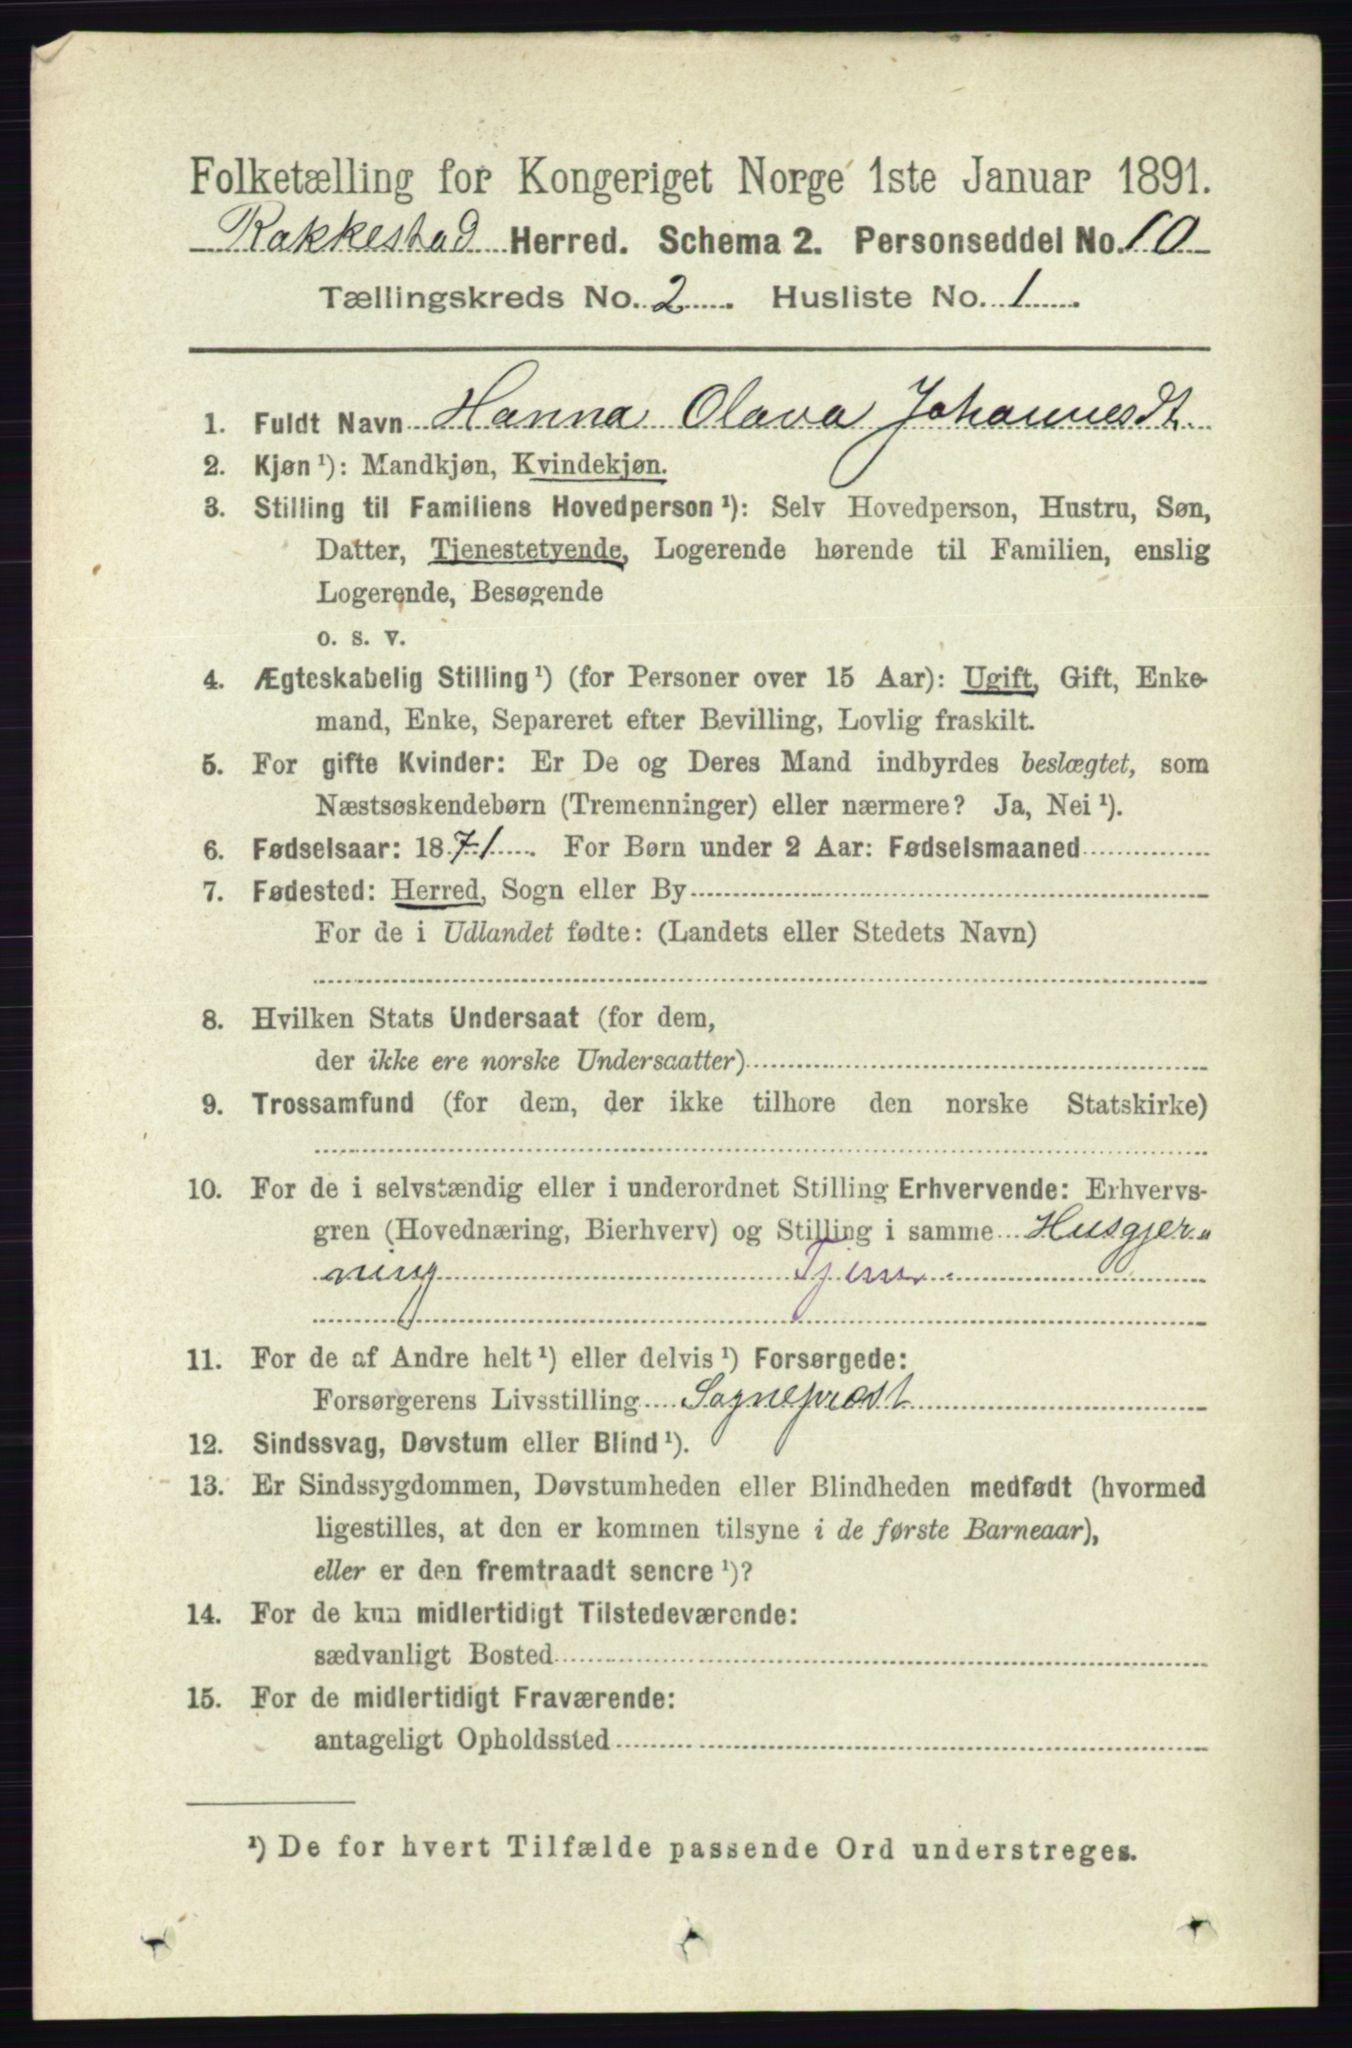 Folketælling for Kongeriget Norge 1ste Januar 1891.
Rakkestad Herred. Schema 2. Personseddel No. 10
Tællingskreds No. 2 . Husliste No. 1 .
1. Fuldt Navn Hanna Olava Johannesdt.
2. Kjøn ¹): Mandkjøn, Kvindekjøn.
3. Stilling til Familiens Hovedperson ¹): Selv Hovedperson, Hustru, Søn,
Datter, Tjenestetyende, Logerende hørende til Familien, enslig
Logerende, Besøgende
o. s. v.
4. Ægteskabelig Stilling ¹) (for Personer over 15 Aar): Ugift, Gift, Enke-
mand, Enke, Separeret efter Bevilling, Lovlig fraskilt.
5. For gifte Kvinder: Er De og Deres Mand indbyrdes beslægtet, som
Næstsøskendebørn (Tremenninger) eller nærmere? Ja, Nei ¹).
6. Fødselsaar: 1871 . For Børn under 2 Aar: Fødselsmaaned
7. Fødested: Herred, Sogn eller By
For de i Udlandet fødte: (Landets eller Stedets Navn)
8. Hvilken Stats Undersaat (for dem,
der ikke ere norske Undersaatter)
9. Trossamfund (for dem, der ikke tilhore den norske Statskirke)
10. For de i selvstændig eller i underordnet Stilling Erhvervende: Erhvervs-
gren (Hovednæring, Bierhverv) og Stilling i samme Husgjer„
ning
11. For de af Andre helt ¹) eller delvis ¹) Forsørgede:
Forsørgerens Livsstilling Sogneprest
12. Sindssvag, Døvstum eller Blind ¹).
13. Er Sindssygdommen, Døvstumheden eller Blindheden medfødt (hvormed
ligestilles, at den er kommen tilsyne i de første Barneaar),
eller er den fremtraadt senere ¹)?
14. For de kun midlertidigt Tilstedeværende:
sædvanligt Bosted
15. For de midlertidigt Fraværende:
antageligt Opholdssted
¹) De for hvert Tilfælde passende Ord understreges.